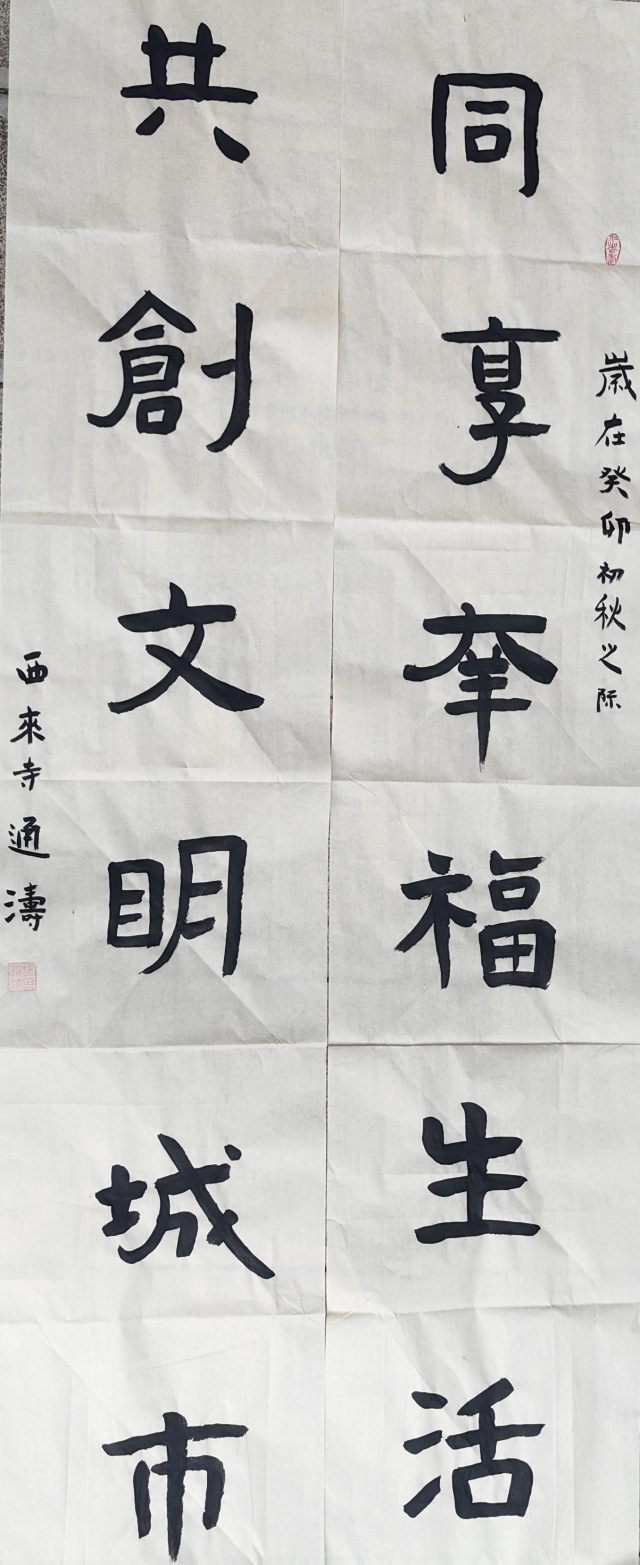 歲在癸卯初秋之际
同享幸福生活
共創文明城市
西來寺通濤